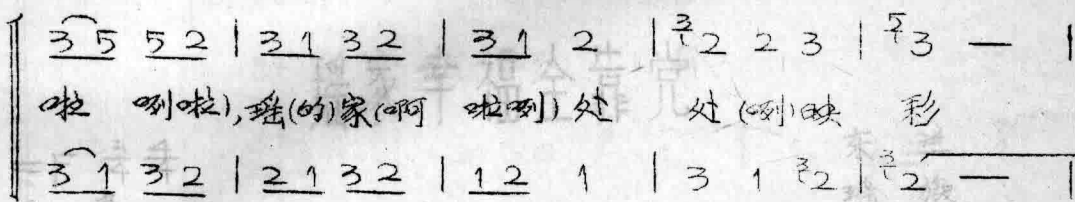 3 5 5 2 | 3 1 3 2 | 3 1 2 | 3 2 2 3 | 5 3 — |
啦 咧啦),瑶(的)家(啊 啦咧)处 处(咧)映 彩
3 1 3 2 | 2 1 3 2 | 1 2 1 | 3 1 3 2 | 3 2 — |